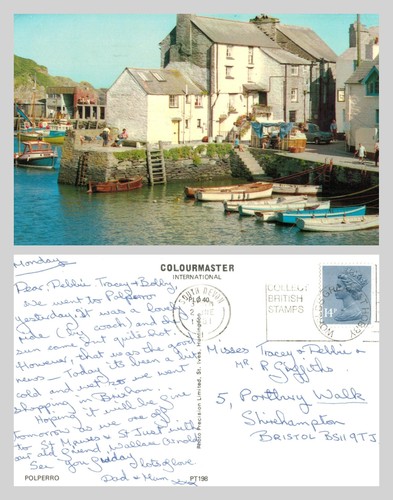 Monday
Dear Debbie Tracey & Bobby,
We went to Polperro
yesterday. It was a lovely
ride (By coach) and the
sun came out quite hot.
However, that was the good
news - Today its been quite
cold and wet, so we went
shopping in Brixham.
Hoping it will be fine
tomorrow as we are off
to St Mawes & St Just with
our old friend Wallace Arnold
See you Friday
lots of love
Dad & Mum xxx
POLPERRO
COLOURMASTER
INTERNATIONAL
PT198
Photo Precision Limited, St. Ives, Huntingdon
SOUTH DEVON
COLLECT
BRITISH
STAMPS
14P
Misses Tracey & Debbie &
Mr. R. Griffiths
5, Porthwy Walk
Shirehampton
BRISTOL BS11 9TJ